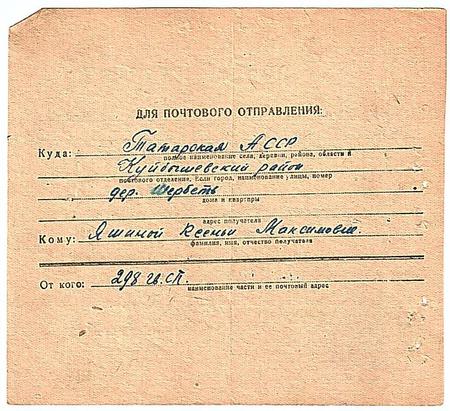 ДЛЯ ПОЧТОВОГО ОТПРАВЛЕНИЯ:
Куда: Татарская АССР
полное наименование села, деревни, района, области и
Куйбышевский район
почтового отделения. Если город, наименование улицы, номер
дер. Шербеть
дома и квартиры
адрес получателя
Кому: Яшиной Ксеньи Максимовне.
фамилия, имя, отчество получателя
От кого: 298 гв. СП.
наименование части и ее почтовый адрес